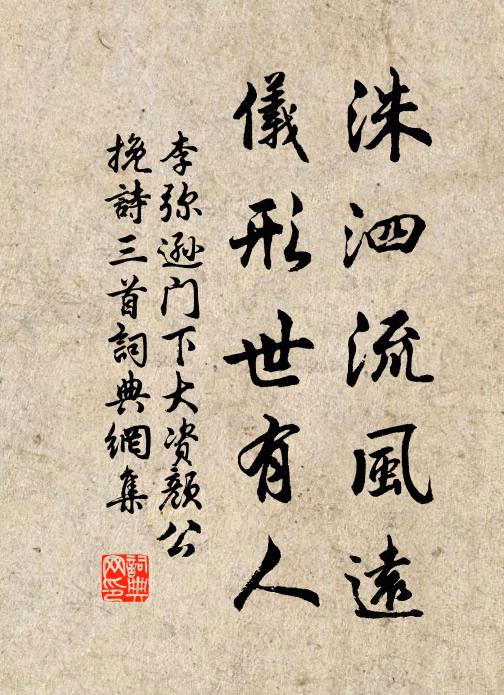 洙泗流風遠
儀形世有人
李弥遜门下大资颜公
挽詩三首詞典網集
詞典网印